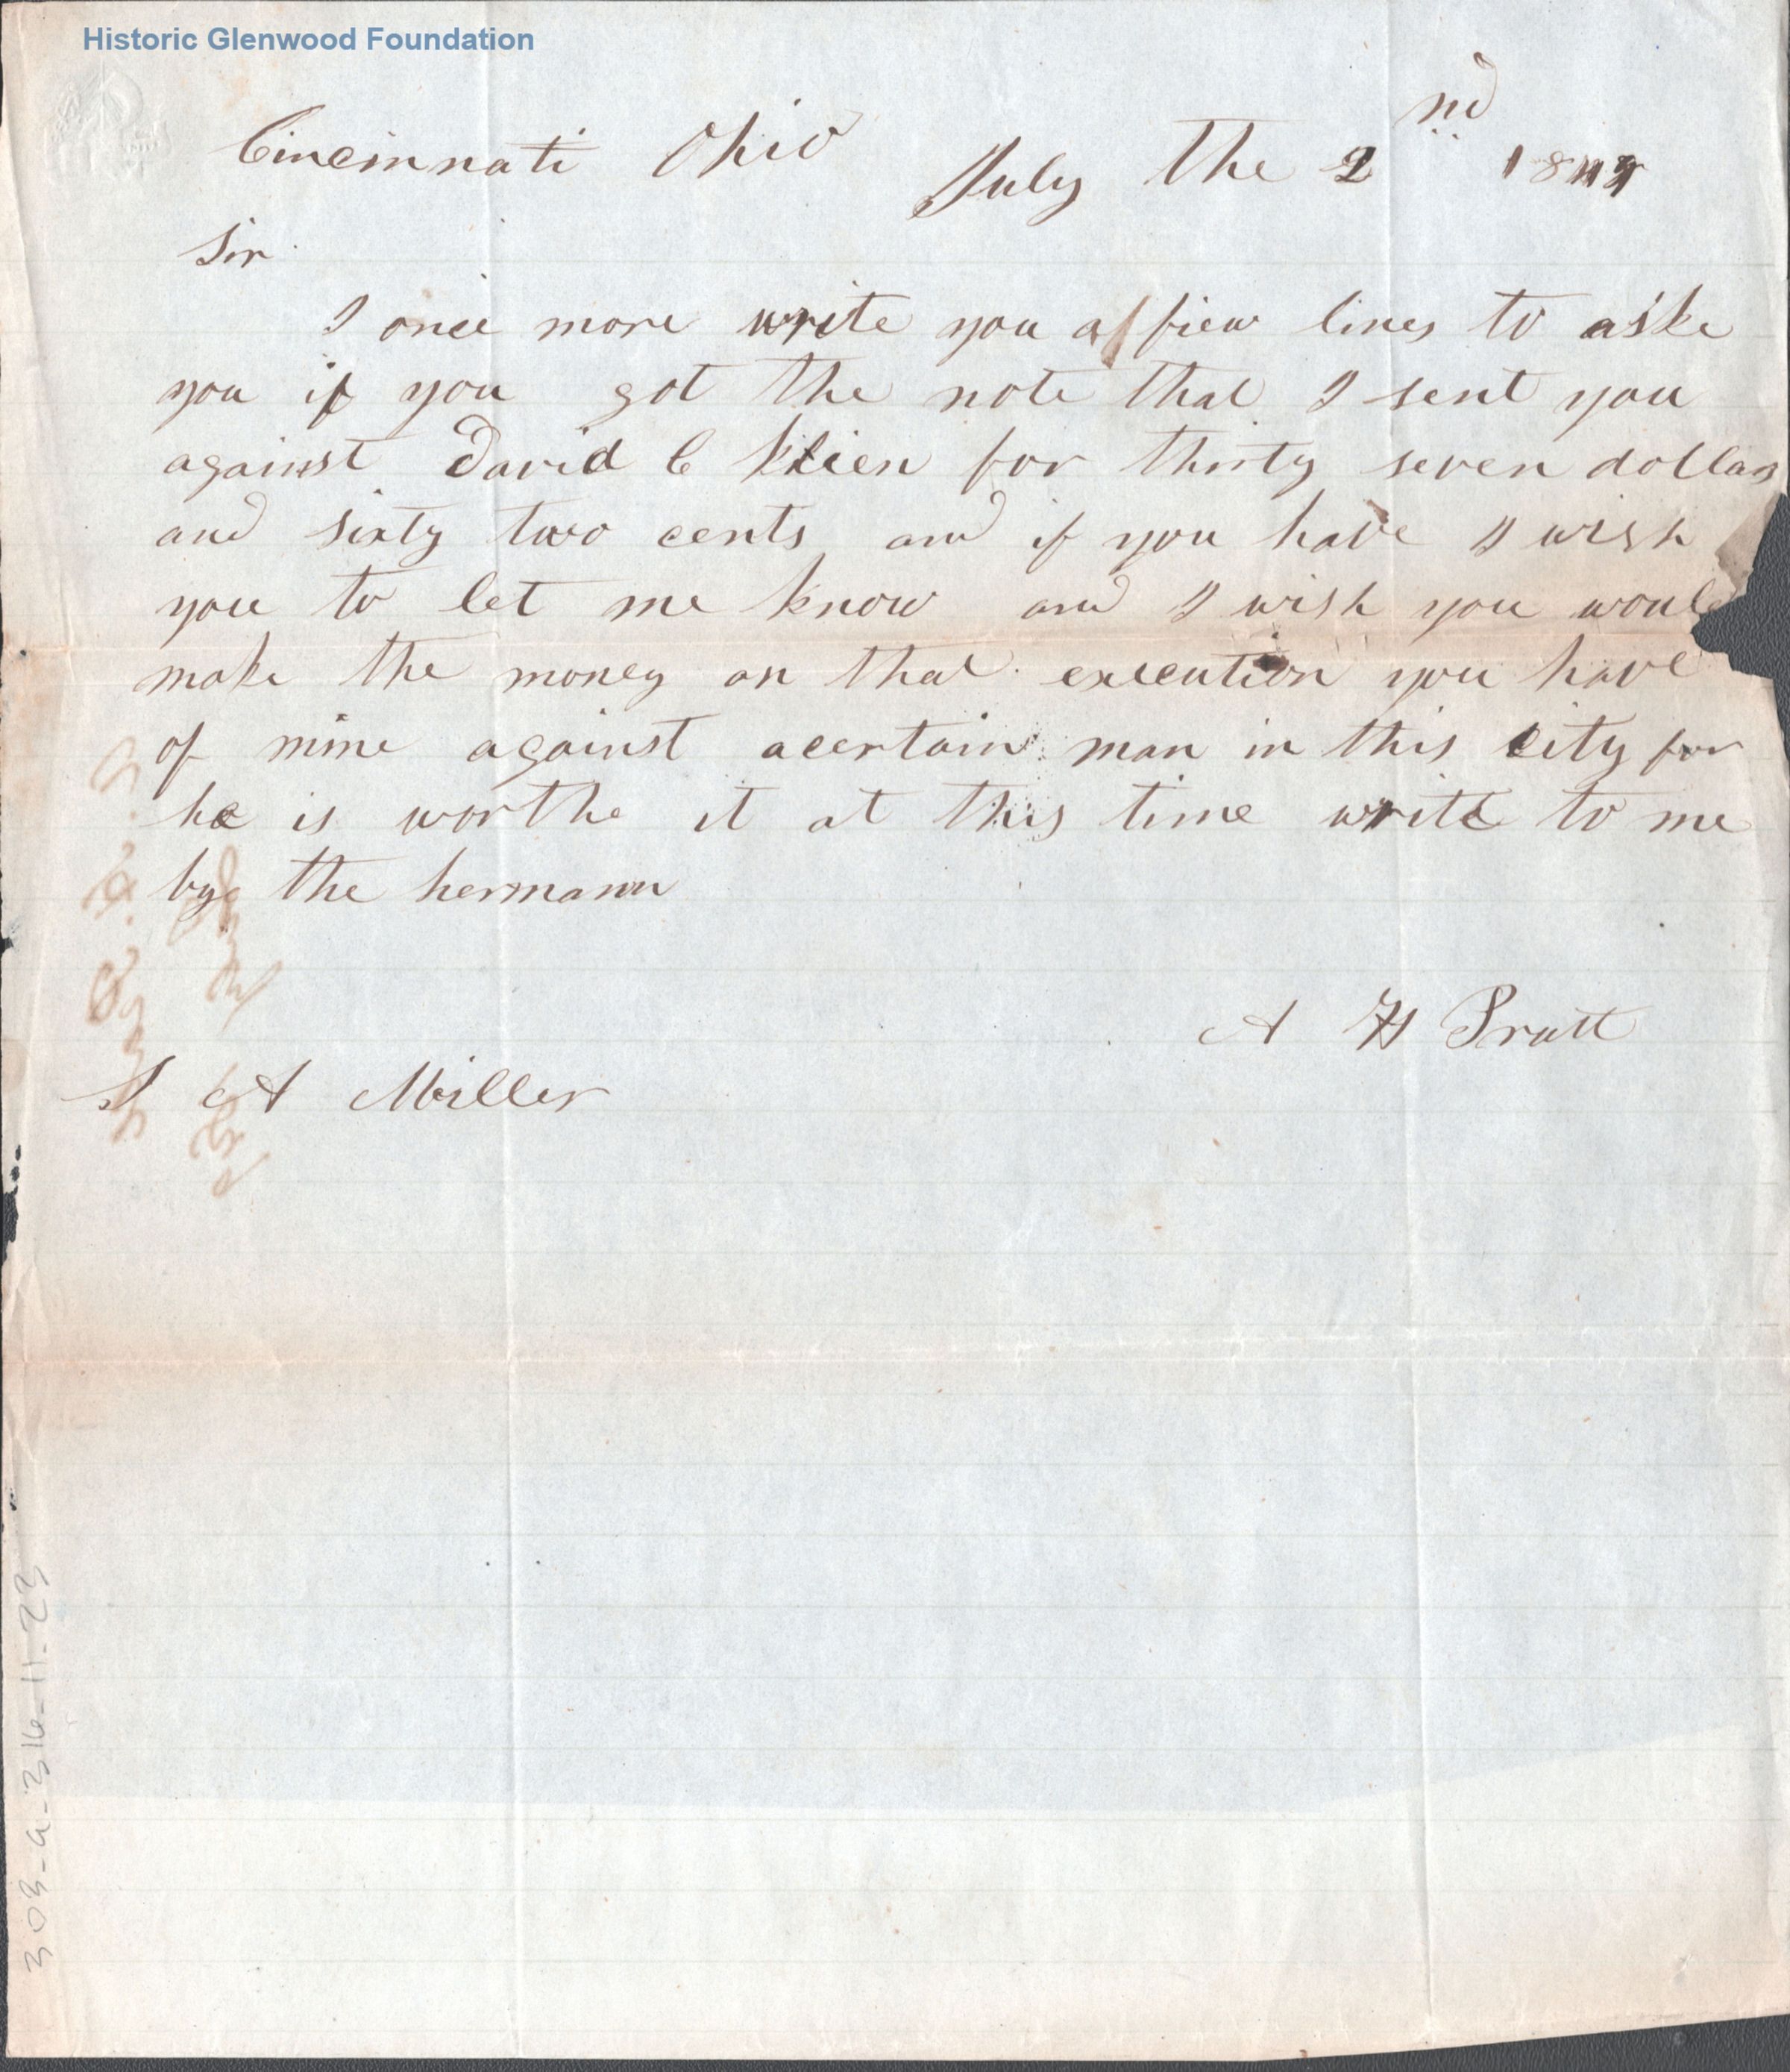 Historic Glenwood Foundation
Cincinnati Ohio July the 2nd
Sir
I once more write you a few lines to aske
you if you got the note that I sent you
against David C Klien for thirty seven dollars
and sixty two cents and if you have I wish
you to let me know and I wish you would
make the money on that execution you have
of mine against acertain man in this city for
he is worthe it at this time write to me
by the hermann
A H Pratt
S A Miller
303-a-316-11-23